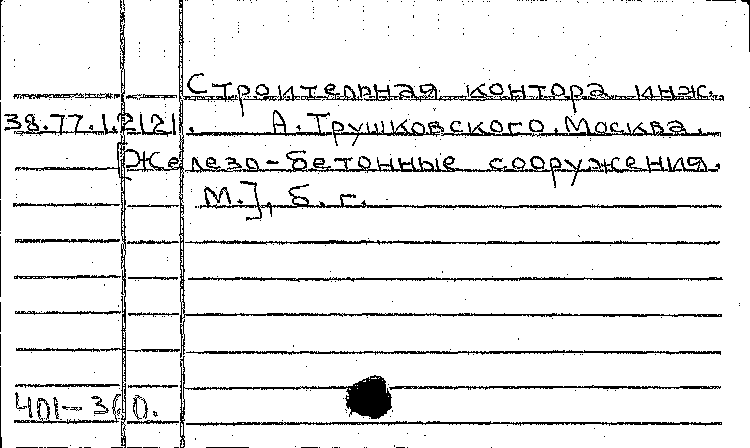 Строительная контора инж.
38.77.1.2121. А.Трушковского.Москва.
[Железо-бетонные сооружения.
М.], б. г.
401-360.